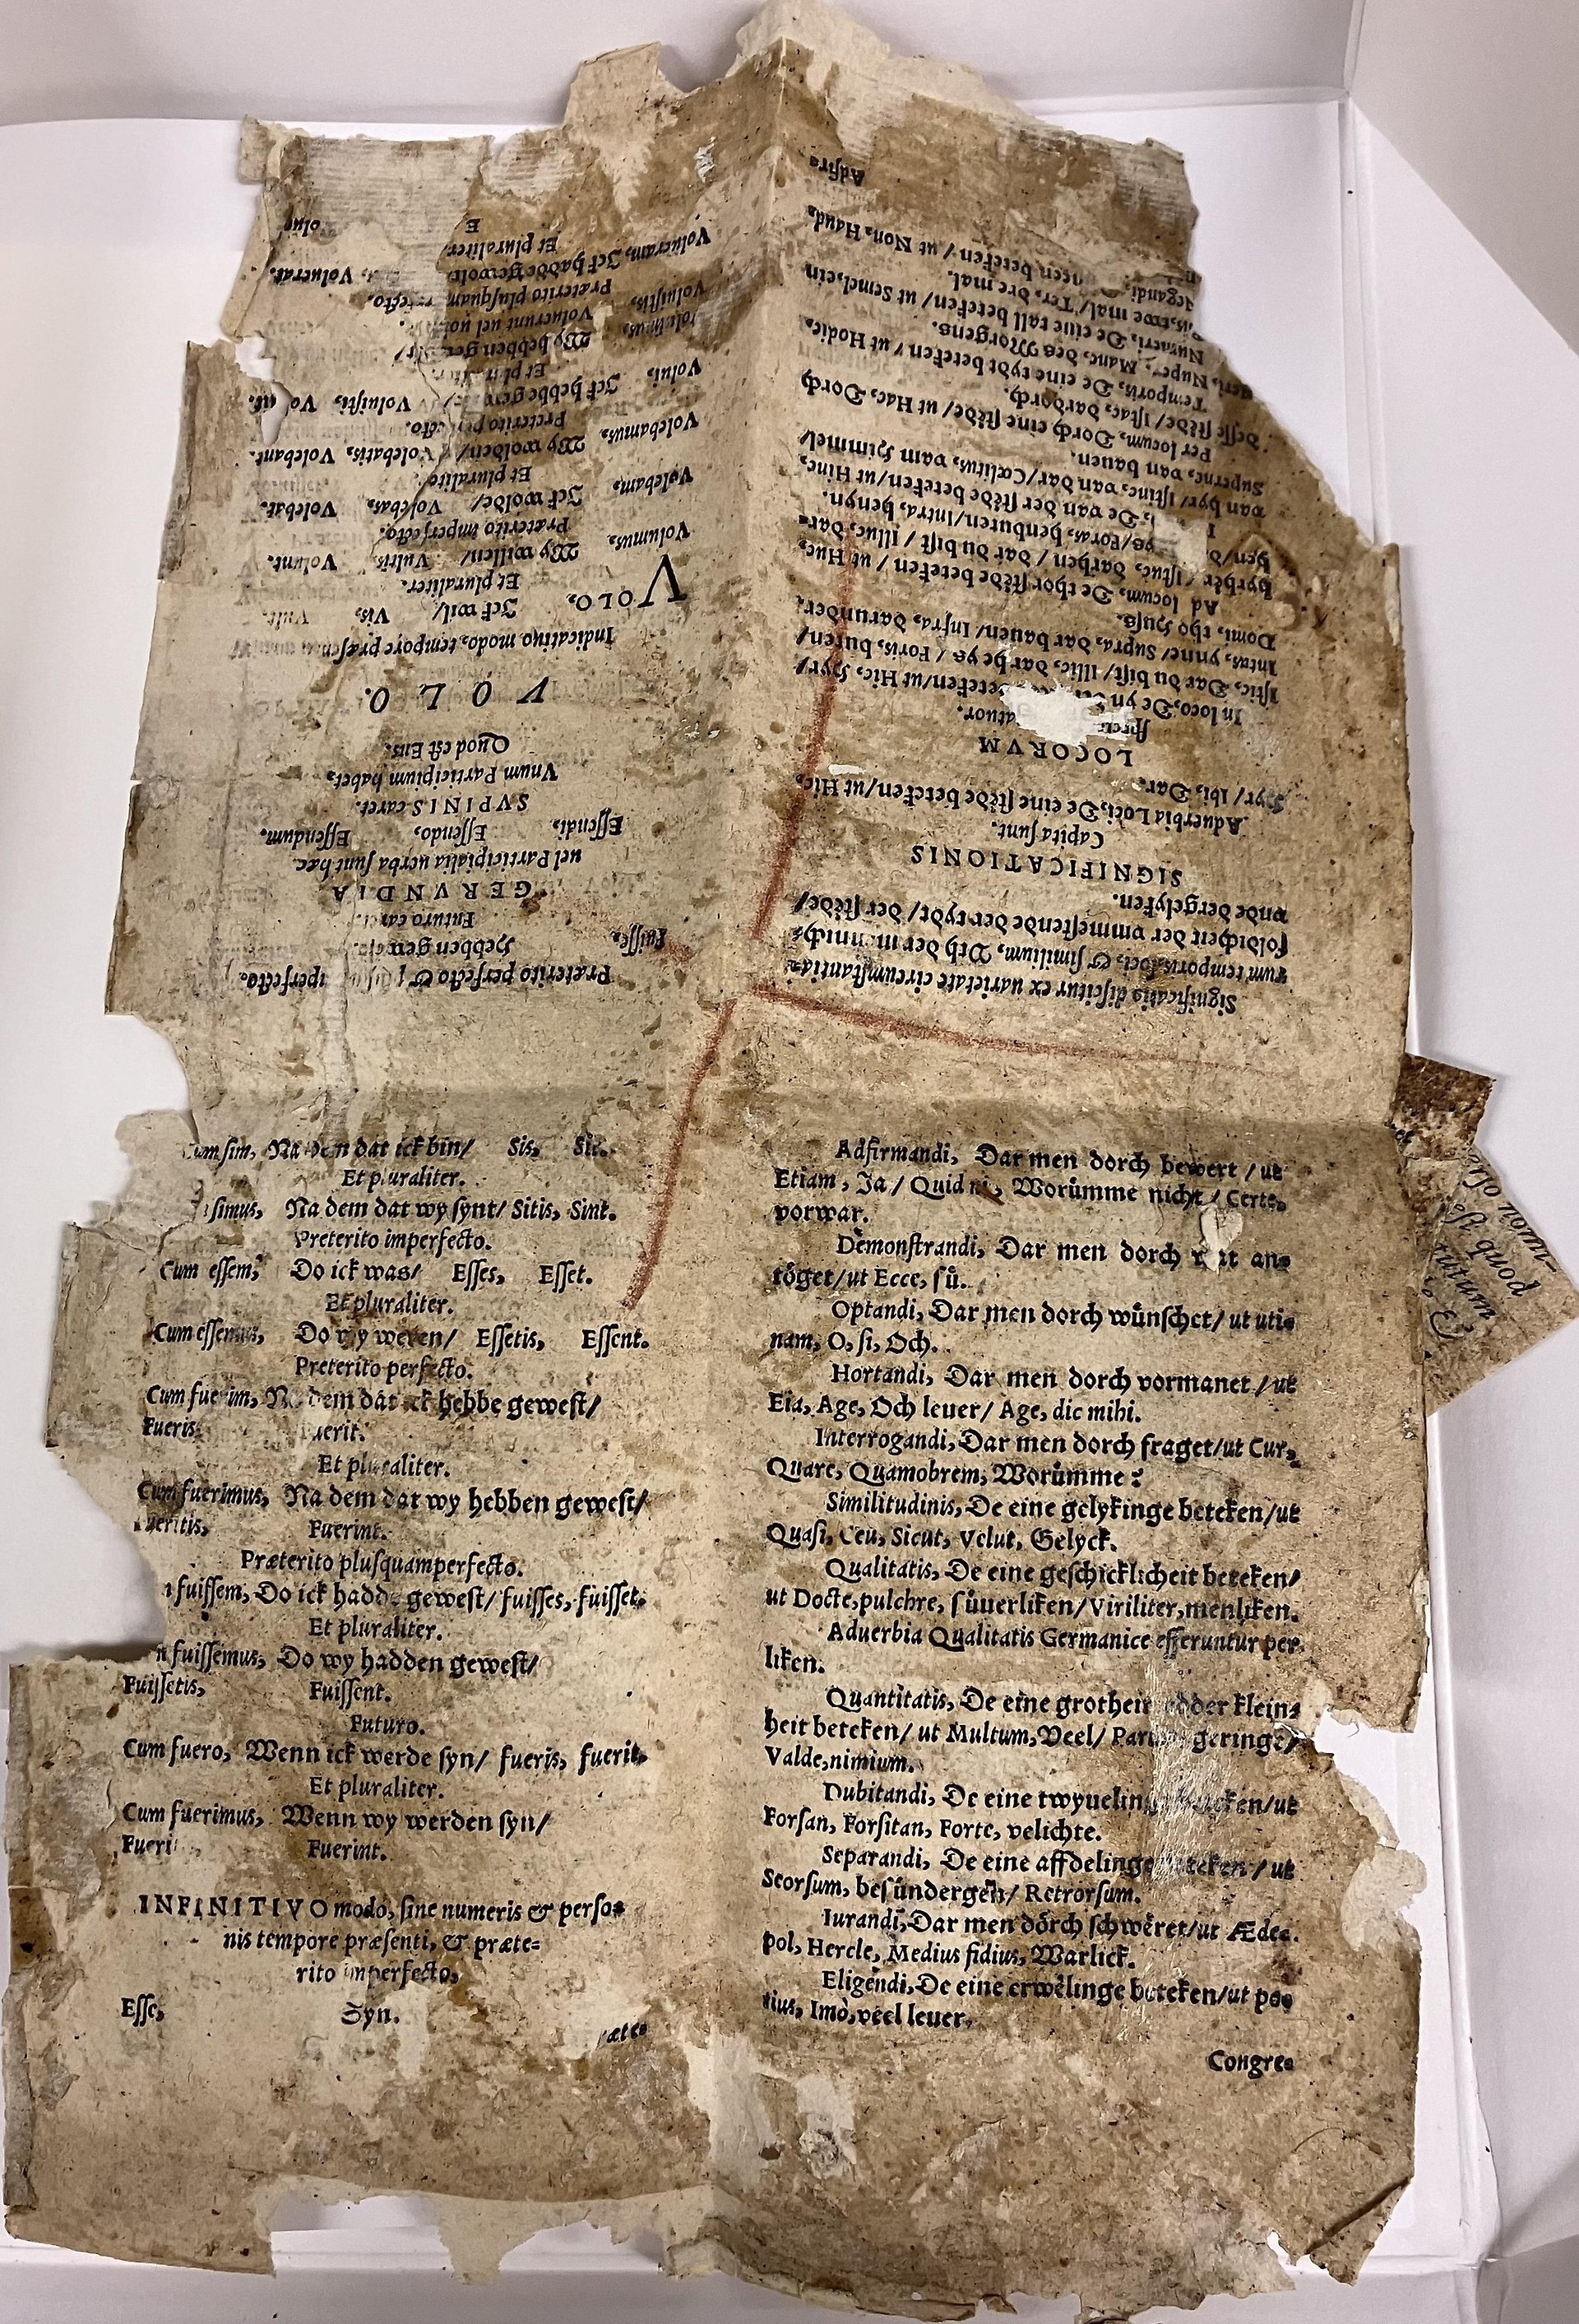 sim, Na dem dat ick bin/ Sis, Sit.
Et pluraliter.
simus, Na dem dat wy synt/ Sitis, Sint.
Preterito imperfecto.
Cum essem, Do ick was/ Esses, Esset.
Et pluraliter.
Cum essemus, Do wy weren/ Essetis, Essent.
Preterito perfecto.
Cum fuerim, Na dem dat ick hebbe geweſt/
Fueris, uerit.
Et pluraliter.
Cum fuerimus, Na dem dat wy hebben geweſt/
ueritis, Fuerint.
Præterito pluſquamperfecto.
fuiſſem, Do ick hadde geweſt/ fuiſſes, fuiſſet.
Et pluraliter.
fuiſſemus, Do wy hadden geweſt/
Fuiſſetis, Fuiſſent.
Futuro.
Cum fuero, Wenn ick werde ſyn/ fueris, fuerit.
Et pluraliter.
Cum fuerimus, Wenn wy werden ſyn/
Fueri Fuerint.
INFINITIVO modo, ſine numeris & perſo-
nis tempore præſenti, & præte-
rito imperfecto,
Eſſe, Syn.
æte-
Præterito perfecto & perfecto.
Fuiſſe, Hebben geweſt.
Futuro caret.
GERVNDIA
uel Participialia uerba ſunt hæc.
Eſſendi, Eſſendo, Eſſendum.
SVPINIS caret.
Vnum Participium habet,
Quod eſt Ens.
VOLO.
Indicatiuo modo, tempore præſen
VOLO, Ick wil/ Vis, Vult.
Et pluraliter.
Volumus, Wy willen/ Vultis, Volunt.
Præterito imperfecto.
Volebam, Ick wolde/ Volebas, Volebat.
Et pluraliter.
Volebamus, Wy wolden/ Volebatis, Volebant.
Preterito perfecto.
Volui, Ick hebbe gew Voluiſti, Vo
Et pluraliter.
Voluimus, Wy hebben gew
Voluiſtis, Voluerunt uel uol
Præterito pluſquam fecto.
Volueram, Ick hadde gewolt, Voluerat.
Et pluraliter.
Significatio diſcitur ex uarietate circumſtantia-
rum temporis, loci, & ſimilium, Vth der mannich-
foldicheit der vmmeſtende der tydt/ der ſtede/
vnde dergelyken.
SIGNIFICATIONIS
Capita ſunt.
Aduerbia Loci, De eine ſtede beteken/ut Hic,
Hyr/ Ibi, Dar.
LOCORVM
atuor.
In loco, De yn beteken/ut Hic, Hyr/
Iſtic, Dar du biſt/ Illic, dar he ys/ Foris, buten/
Intus, ynne/ Supra, dar bauen/ Infra, darunder/
Domi, tho Huſe.
Ad locum, De thor ſtede beteken/ ut Huc,
hyrher/ Iſtuc, darhen/ dar du biſt/ Illuc, dar-
hen/ ys/ Foras, henbuten/ Intra, henyn.
De van der ſtede beteken/ut Hinc,
van hyr/ Iſtinc, van dar/ Cœlitus, vam Himmel/
Superne, van bauen.
Per locum, Dorch eine ſtede/ ut Hac, Dorch
deſſe ſtede/ Iſtac, dardorch.
Temporis, De eine tydt beteken/ ut Hodie,
Nuper, Mane, des Morgens.
Numeri, De eine tall beteken/ ut Semel, ein
mal/ Ter, dre mal.
egandi, neen beteken/ ut Non, Haud,
Adfir-
Adfirmandi, Dar men dorch bewert/ ut
Etiam, Ja/ Quid ni, Worümme nicht/ Certe,
vorwar.
Demonſtrandi, Dar men dorch an-
töget/ut Ecce, ſü.
Optandi, Dar men dorch wünſchet/ ut uti-
nam, O, ſi, Och.
Hortandi, Dar men dorch vormanet/ut
Eia, Age, Och leuer/ Age, dic mihi.
Interrogandi, Dar men dorch fraget/ut Cur,
Quare, Quamobrem, Worümme?
Similitudinis, De eine gelykinge beteken/ut
Quaſi, Ceu, Sicut, Velut, Gelyck.
Qualitatis, De eine geſchicklicheit beteken/
ut Docte, pulchre, ſüuerliken/ Viriliter, menliken.
Aduerbia Qualitatis Germanice efferuntur per
liken.
Quantitatis, De eine grotheit edder klein-
heit beteken/ ut Multum, Veel/ Parum, geringe/
Valde, nimium.
Dubitandi, De eine twyuelinge beteken/ut
Forſan, Forſitan, Forte, velichte.
Separandi, De eine affdelinge beteken/ut
Seorſum, beſündergen/ Retrorſum.
Iurandi, Dar men dörch ſchweret/ut Æde-
pol, Hercle, Medius fidius, Warlick.
Eligendi, De eine erwelinge beteken/ut po-
tius, Imò, veel leuer.
Congre-